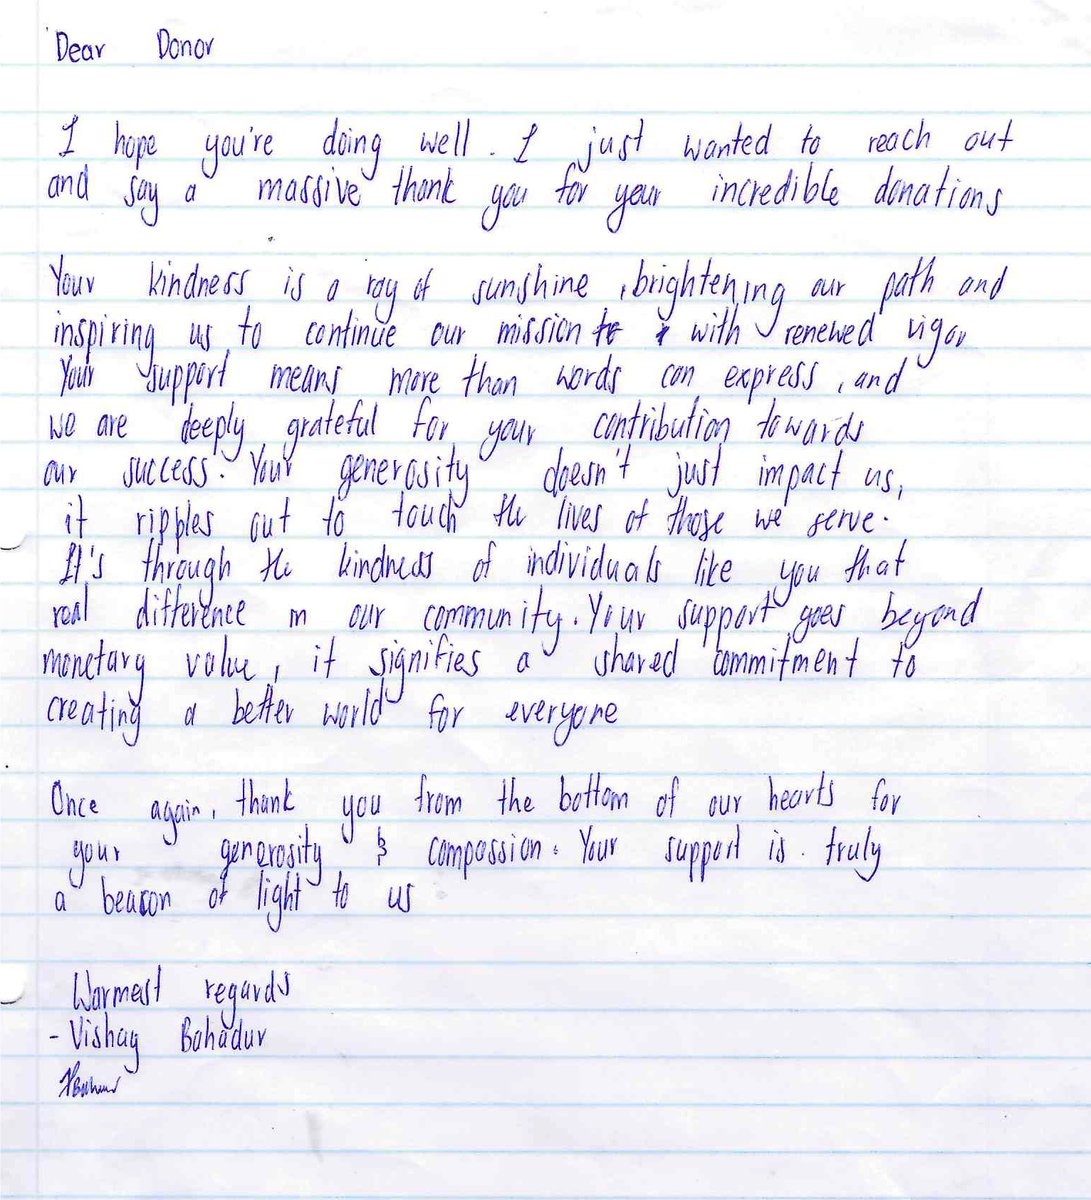 Dear Donor
I hope you're doing well. I just wanted to reach out
and say a massive thank you for your incredible donations
Your kindness is a ray of sunshine, brightening our path and
inspiring us to continue our mission with renewed vigor
Your support means more than words can express, and
we are deeply grateful for your contribution towards
our success. Your generosity doesn't just impact us,
it ripples out to touch the lives of those we serve.
It's through the kindness of individuals like you that
real difference in our community. Your support goes beyond
monetary value, it signifies a shared commitment to
creating a better world for everyone
Once again, thank you from the bottom of our hearts for
your generosity & compassion. Your support is truly
a beacon of light to us
Warmest regards
- Vishay Bahadur